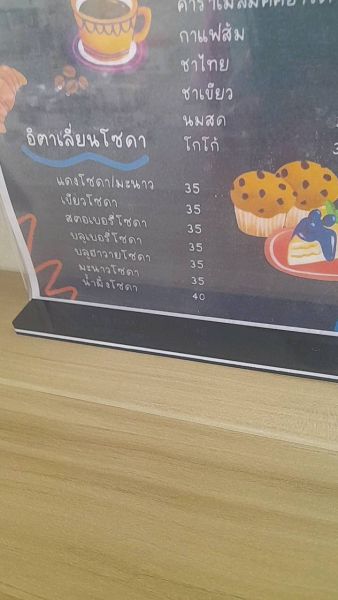 กาแฟส้ม
ชาไทย
ชาเขียว
นมสด
โกโก้
อิตาเลี่ยนโซดา
แดงโซดา/มะนาว 35
เขียวโซดา 35
สตอเบอรี่โซดา 35
บลูเบอรี่โซดา 35
บลูฮาวายโซดา 35
มะนาวโซดา 35
น้ำผึ้งโซดา 40